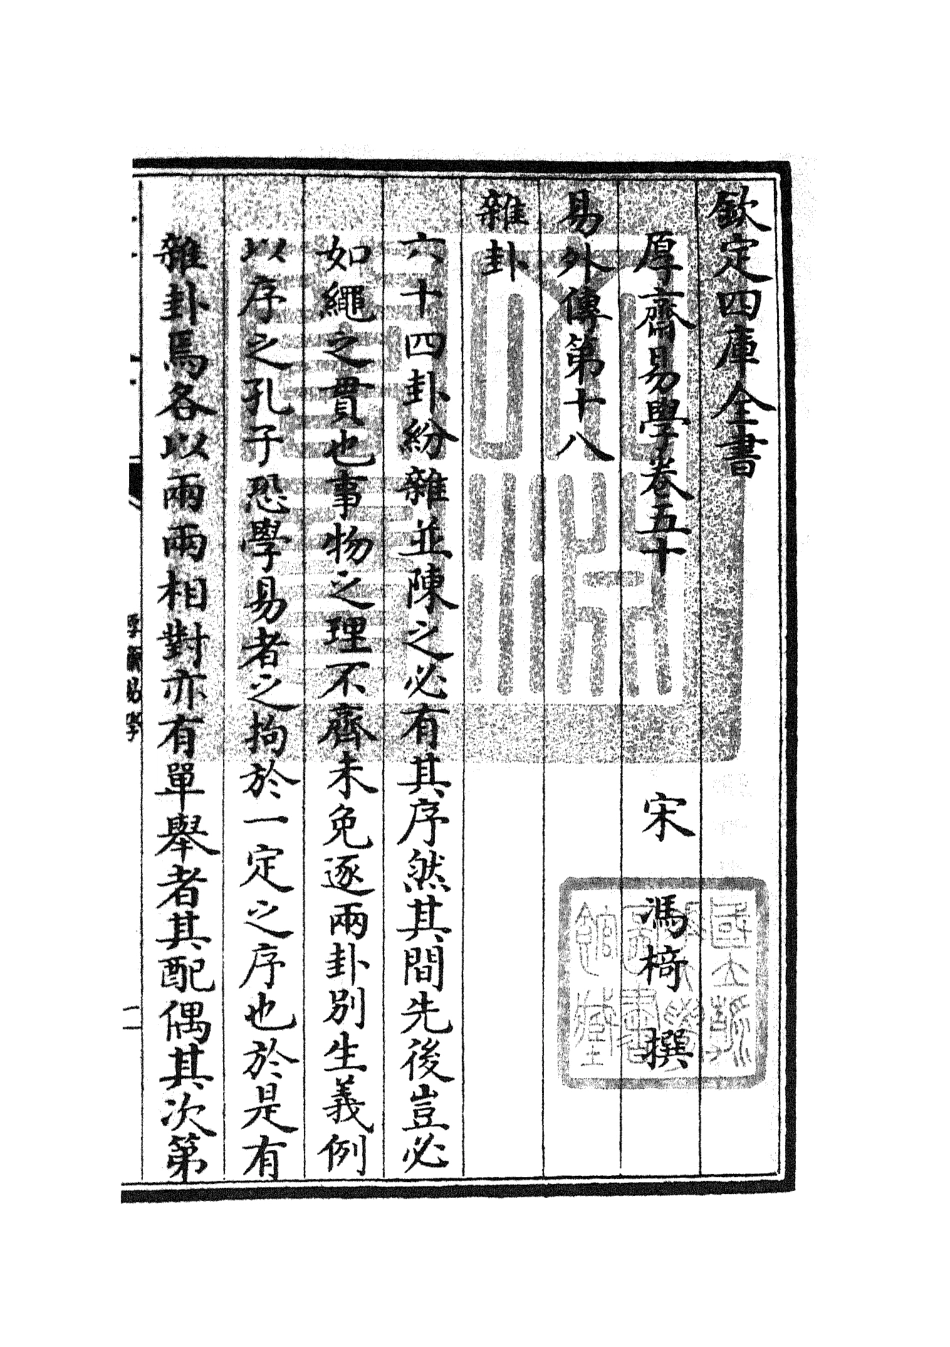 欽定四庫全書
厚齋易學卷五十
宋 馮椅 撰
易外傳第十八
雜卦
六十四卦紛雜並陳之必有其序然其間先後豈必
如繩之貫也事物之理不齊未免逐兩卦別生義例
以序之孔子恐學易者之拘於一定之序也於是有
雜卦焉各以兩兩相對亦有單舉者其配偶其次第
厚齋易學
一